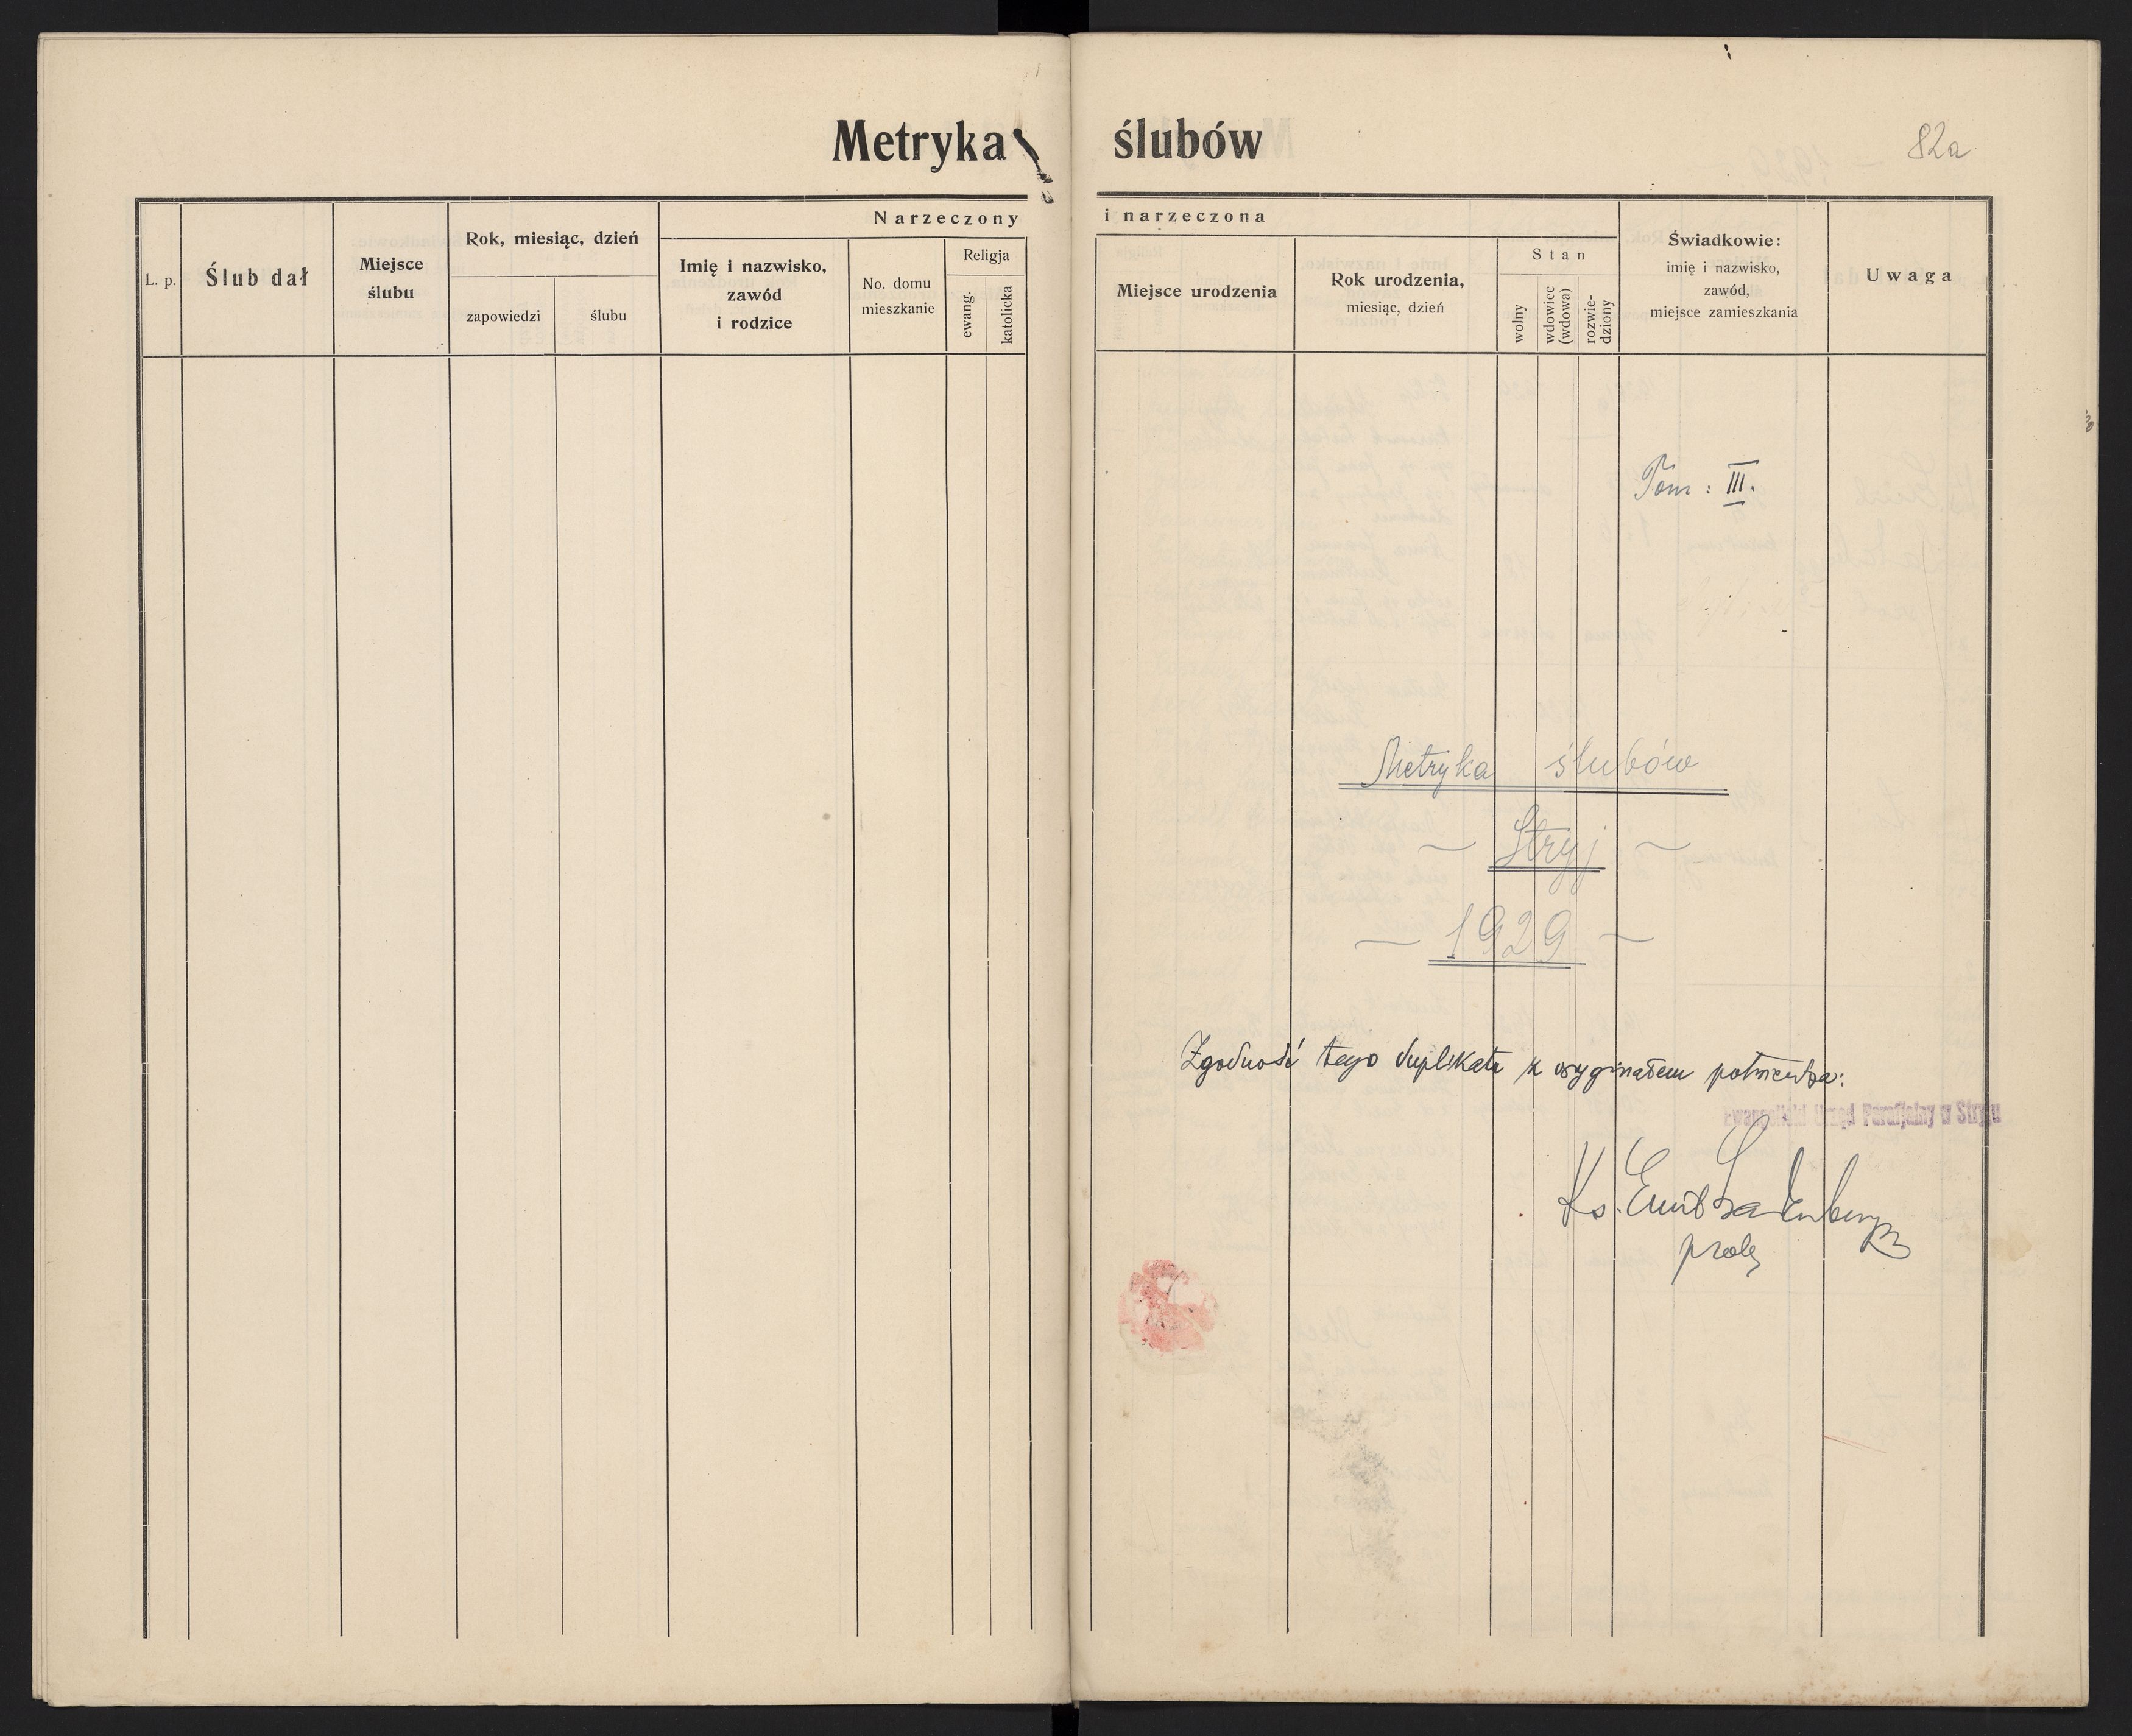 Metryka ślubów
82a
L. p.
Ślub dał
Miejsce
ślubu
Rok, miesiąc, dzień
zapowiedzi
ślubu
Narzeczony
Imię i nazwisko,
zawód
i rodzice
No. domu
mieszkanie
Religja
ewang.
katolicka
i narzeczona
Miejsce urodzenia
Rok urodzenia,
miesiąc, dzień
Stan
wolny
wdowiec
(wdowa)
rozwie-
dziony
Świadkowie:
imię i nazwisko,
zawód,
miejsce zamieszkania
Uwaga
Tom: III.
Metryka ślubów
~ Stryj ~
~ 1929 ~
Zgodność tego duplikatu z oryginałem potwierdza:
Ewangelicki Urząd Parafjalny w Stryju
Ks. Emil Ladenberger